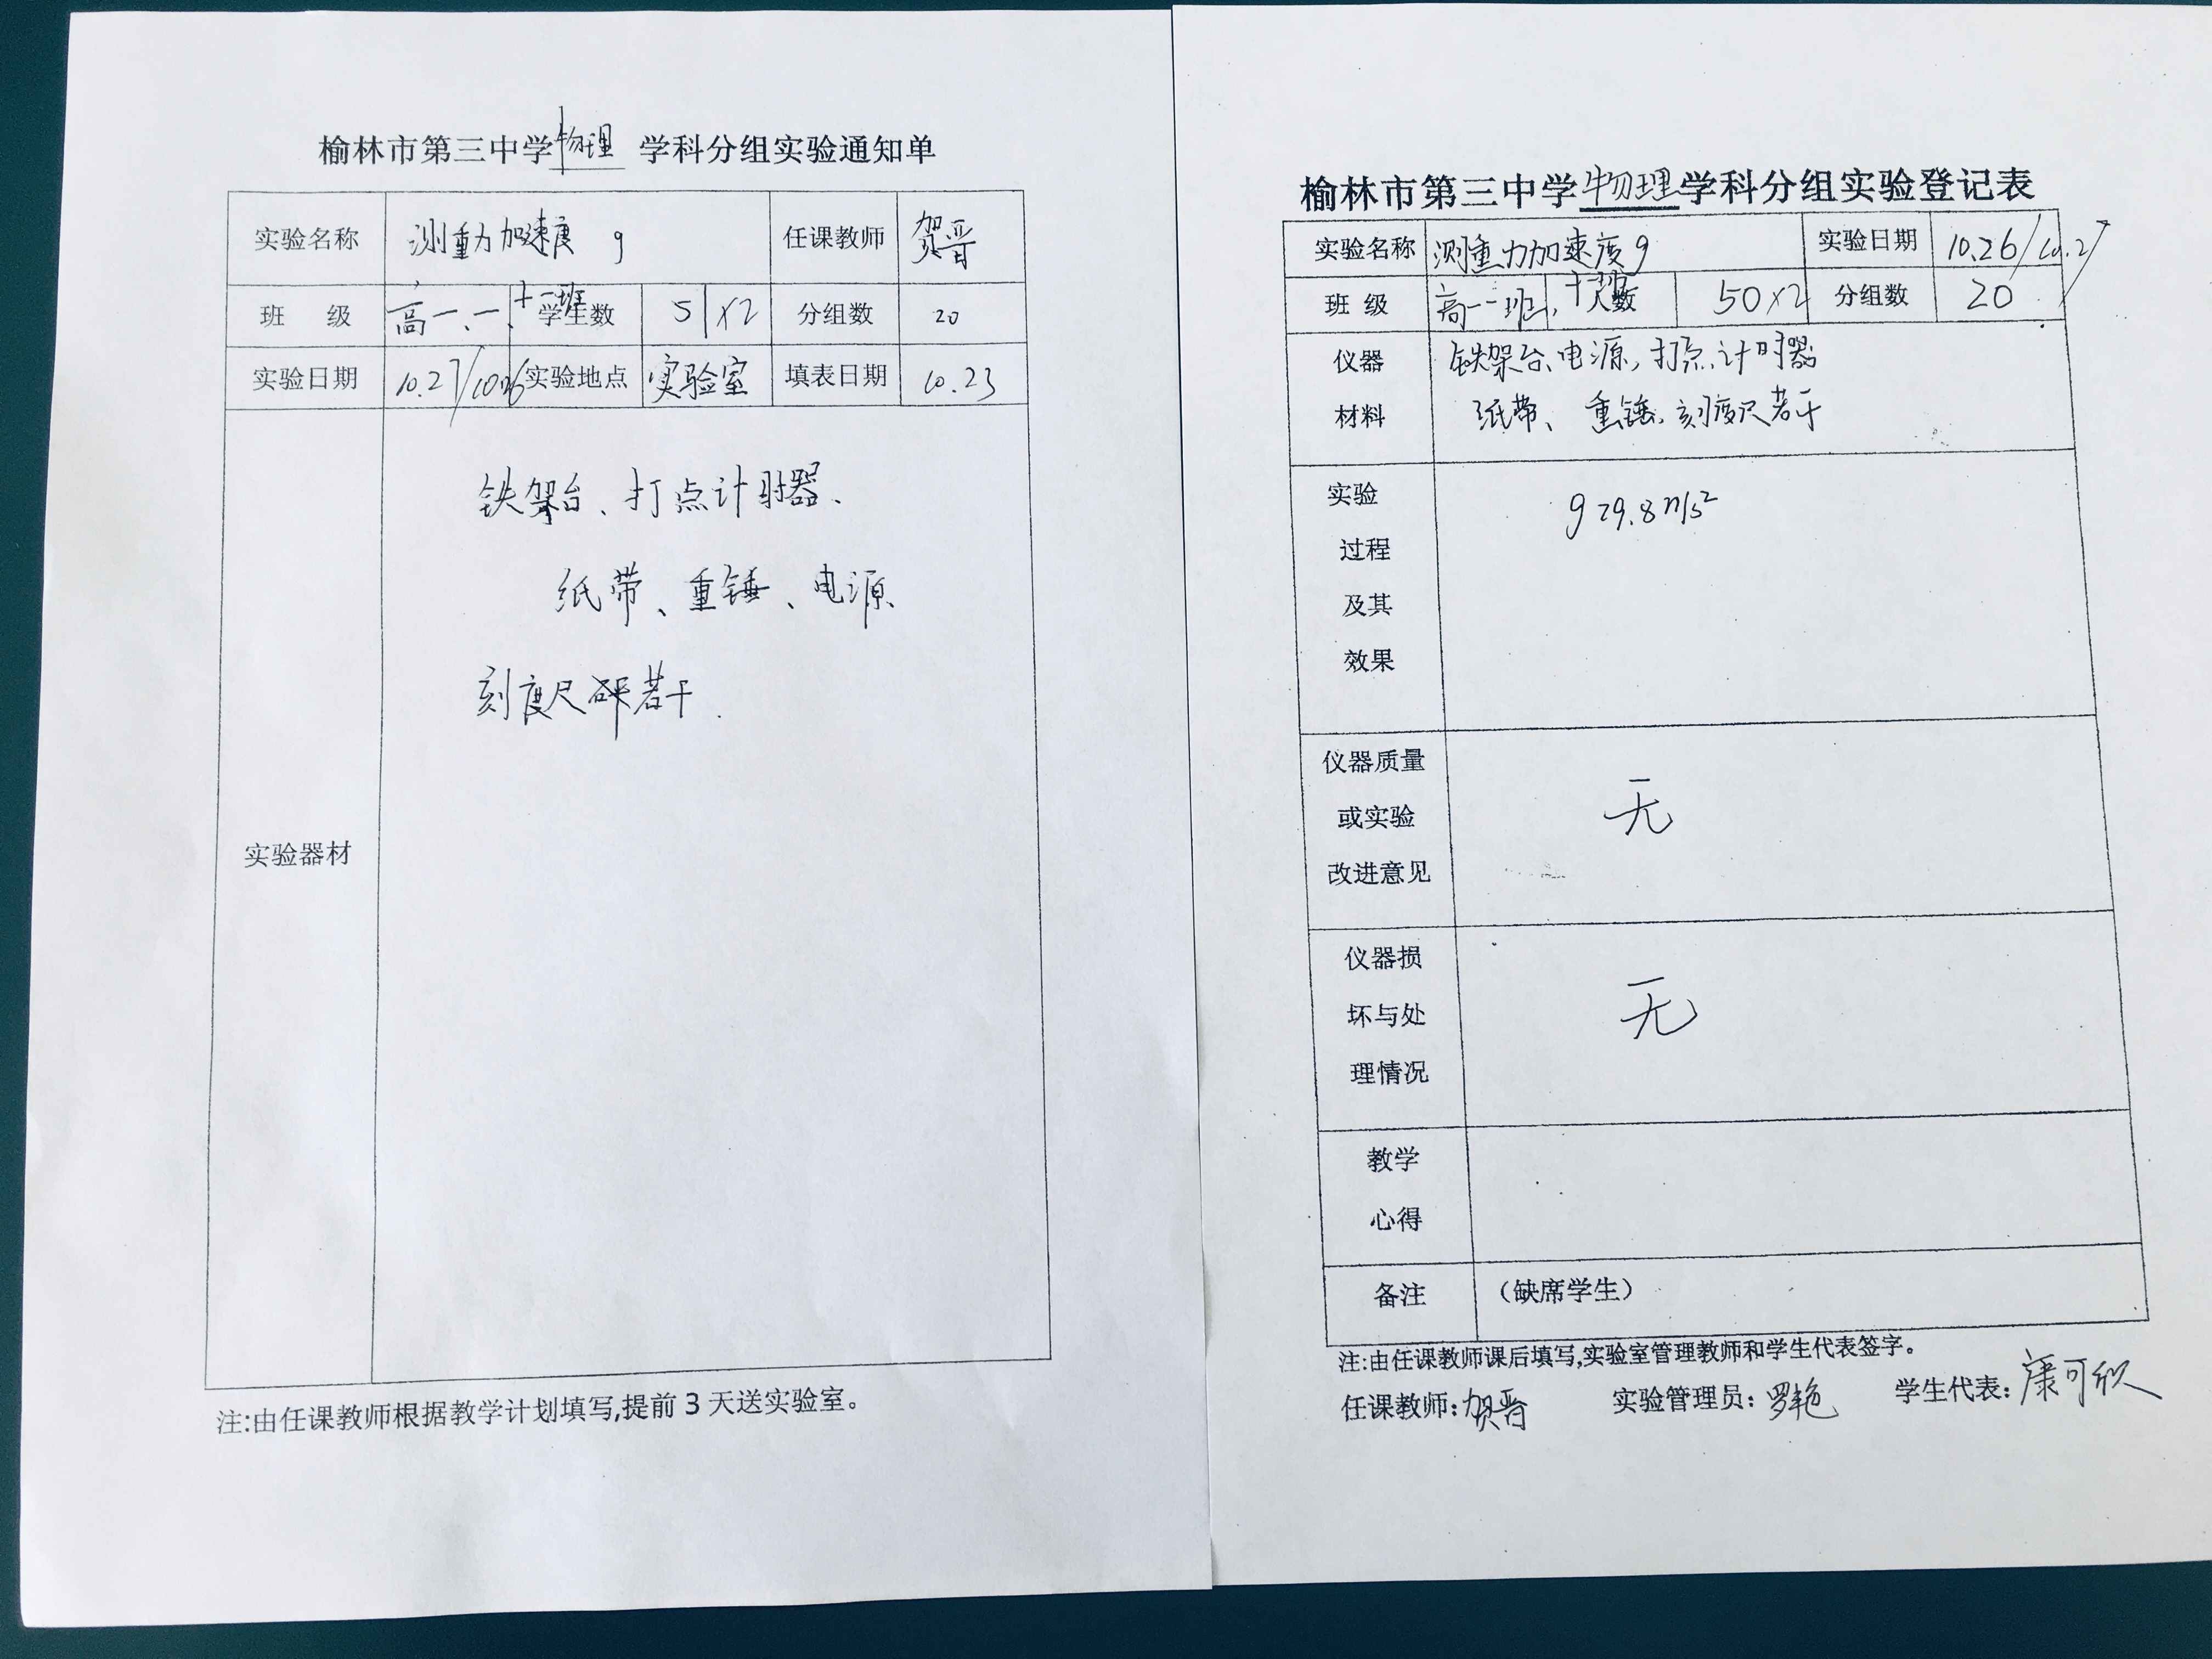 榆林市第三中学物理 学科分组实验通知单
实验名称 测重力加速度 g 任课教师 贺晋
班 级 高一、一、十一班 学生数 51×2 分组数 20
实验日期 10.27/10.26 实验地点 实验室 填表日期 10.23
实验器材
铁架台、打点计时器、
纸带、重锤、电源
刻度尺 若干.
注:由任课教师根据教学计划填写,提前3天送实验室。
榆林市第三中学物理学科分组实验登记表
实验名称 测重力加速度g 实验日期 10.26/10.27
班 级 高一一班,十一班 人数 50×2 分组数 20
仪器 铁架台、电源,打点计时器
材料 纸带、重锤,刻度尺若干
实验
过程
及其
效果
g=9.8m/s²
仪器质量
或实验
改进意见
无
仪器损
坏与处
理情况
无
教学
心得
备注 (缺席学生)
注:由任课教师课后填写,实验室管理教师和学生代表签字。
任课教师:贺晋 实验管理员:罗艳 学生代表:康可欣